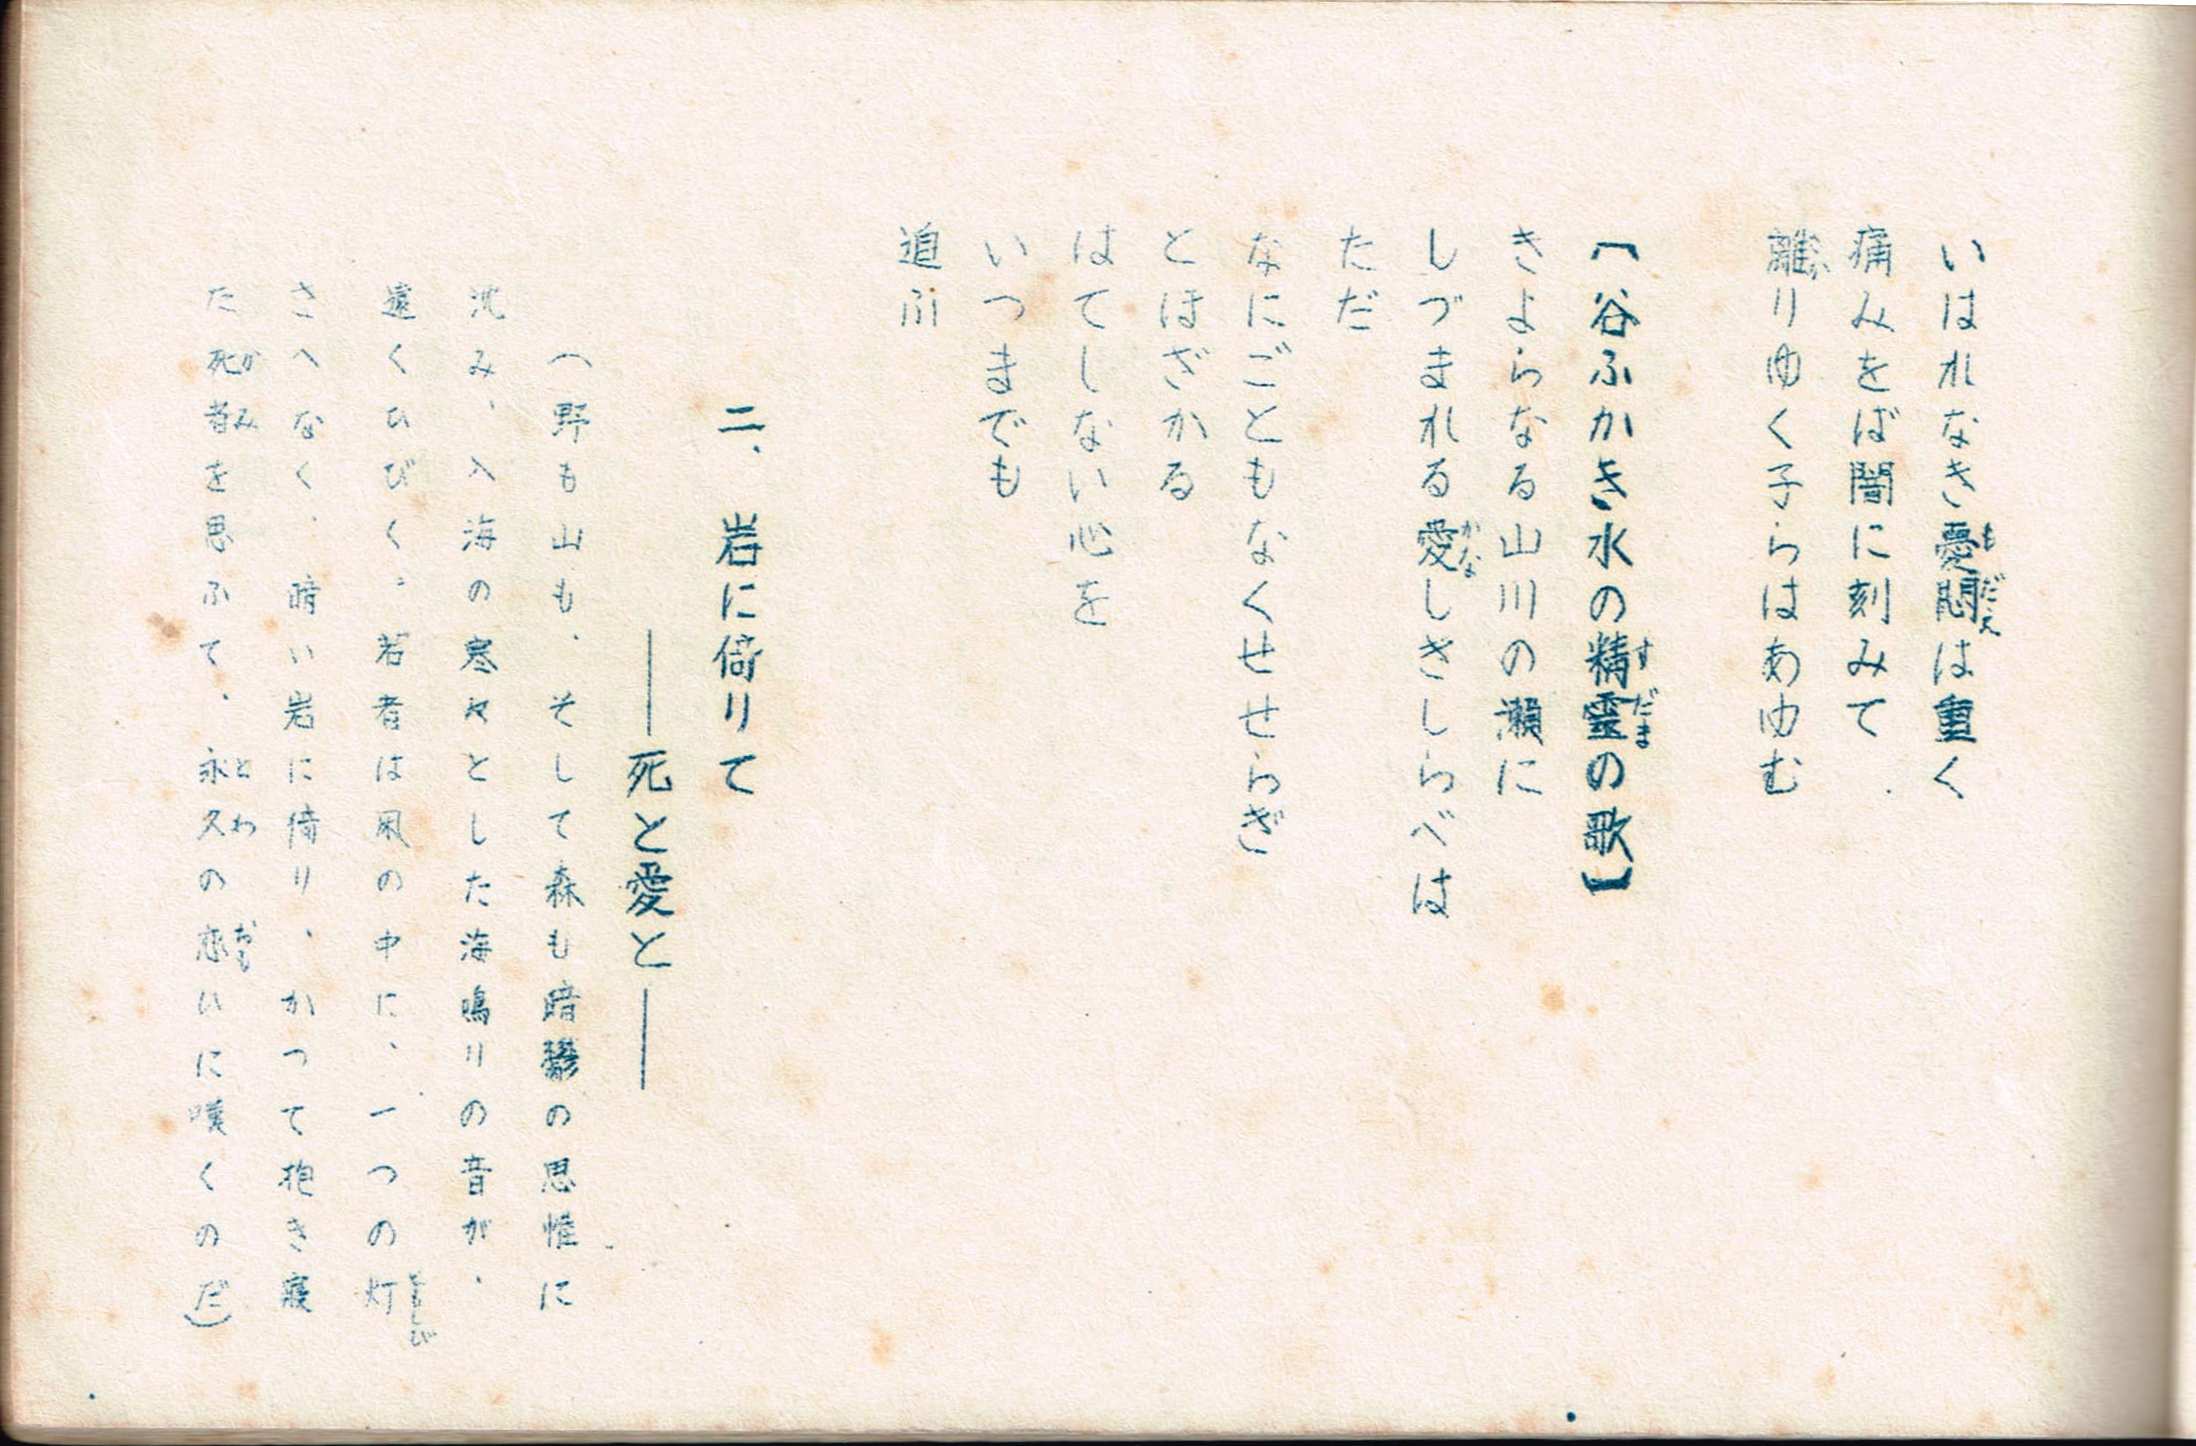 いはれなき憂悶は重く
痛みをば闇に刻みて
離りゆく子らはあゆむ
【谷ふかき水の精霊の歌】
きよらなる山川の瀬に
しづまれる愛しきしらべは
ただ
なにごともなくせせらぎ
とほざかる
はてしない心を
いつまでも
追ふ
二、岩に倚りて
――死と愛と――
(野も山も、そして森も暗鬱の思惟に
沈み、入海の寒々とした海鳴りの音が、
遠くひびく。若者は風の中に、一つの灯
さへなく、暗い岩に倚り、かつて抱き寝
た死者を思ふて、永久の恋いに嘆くのだ)